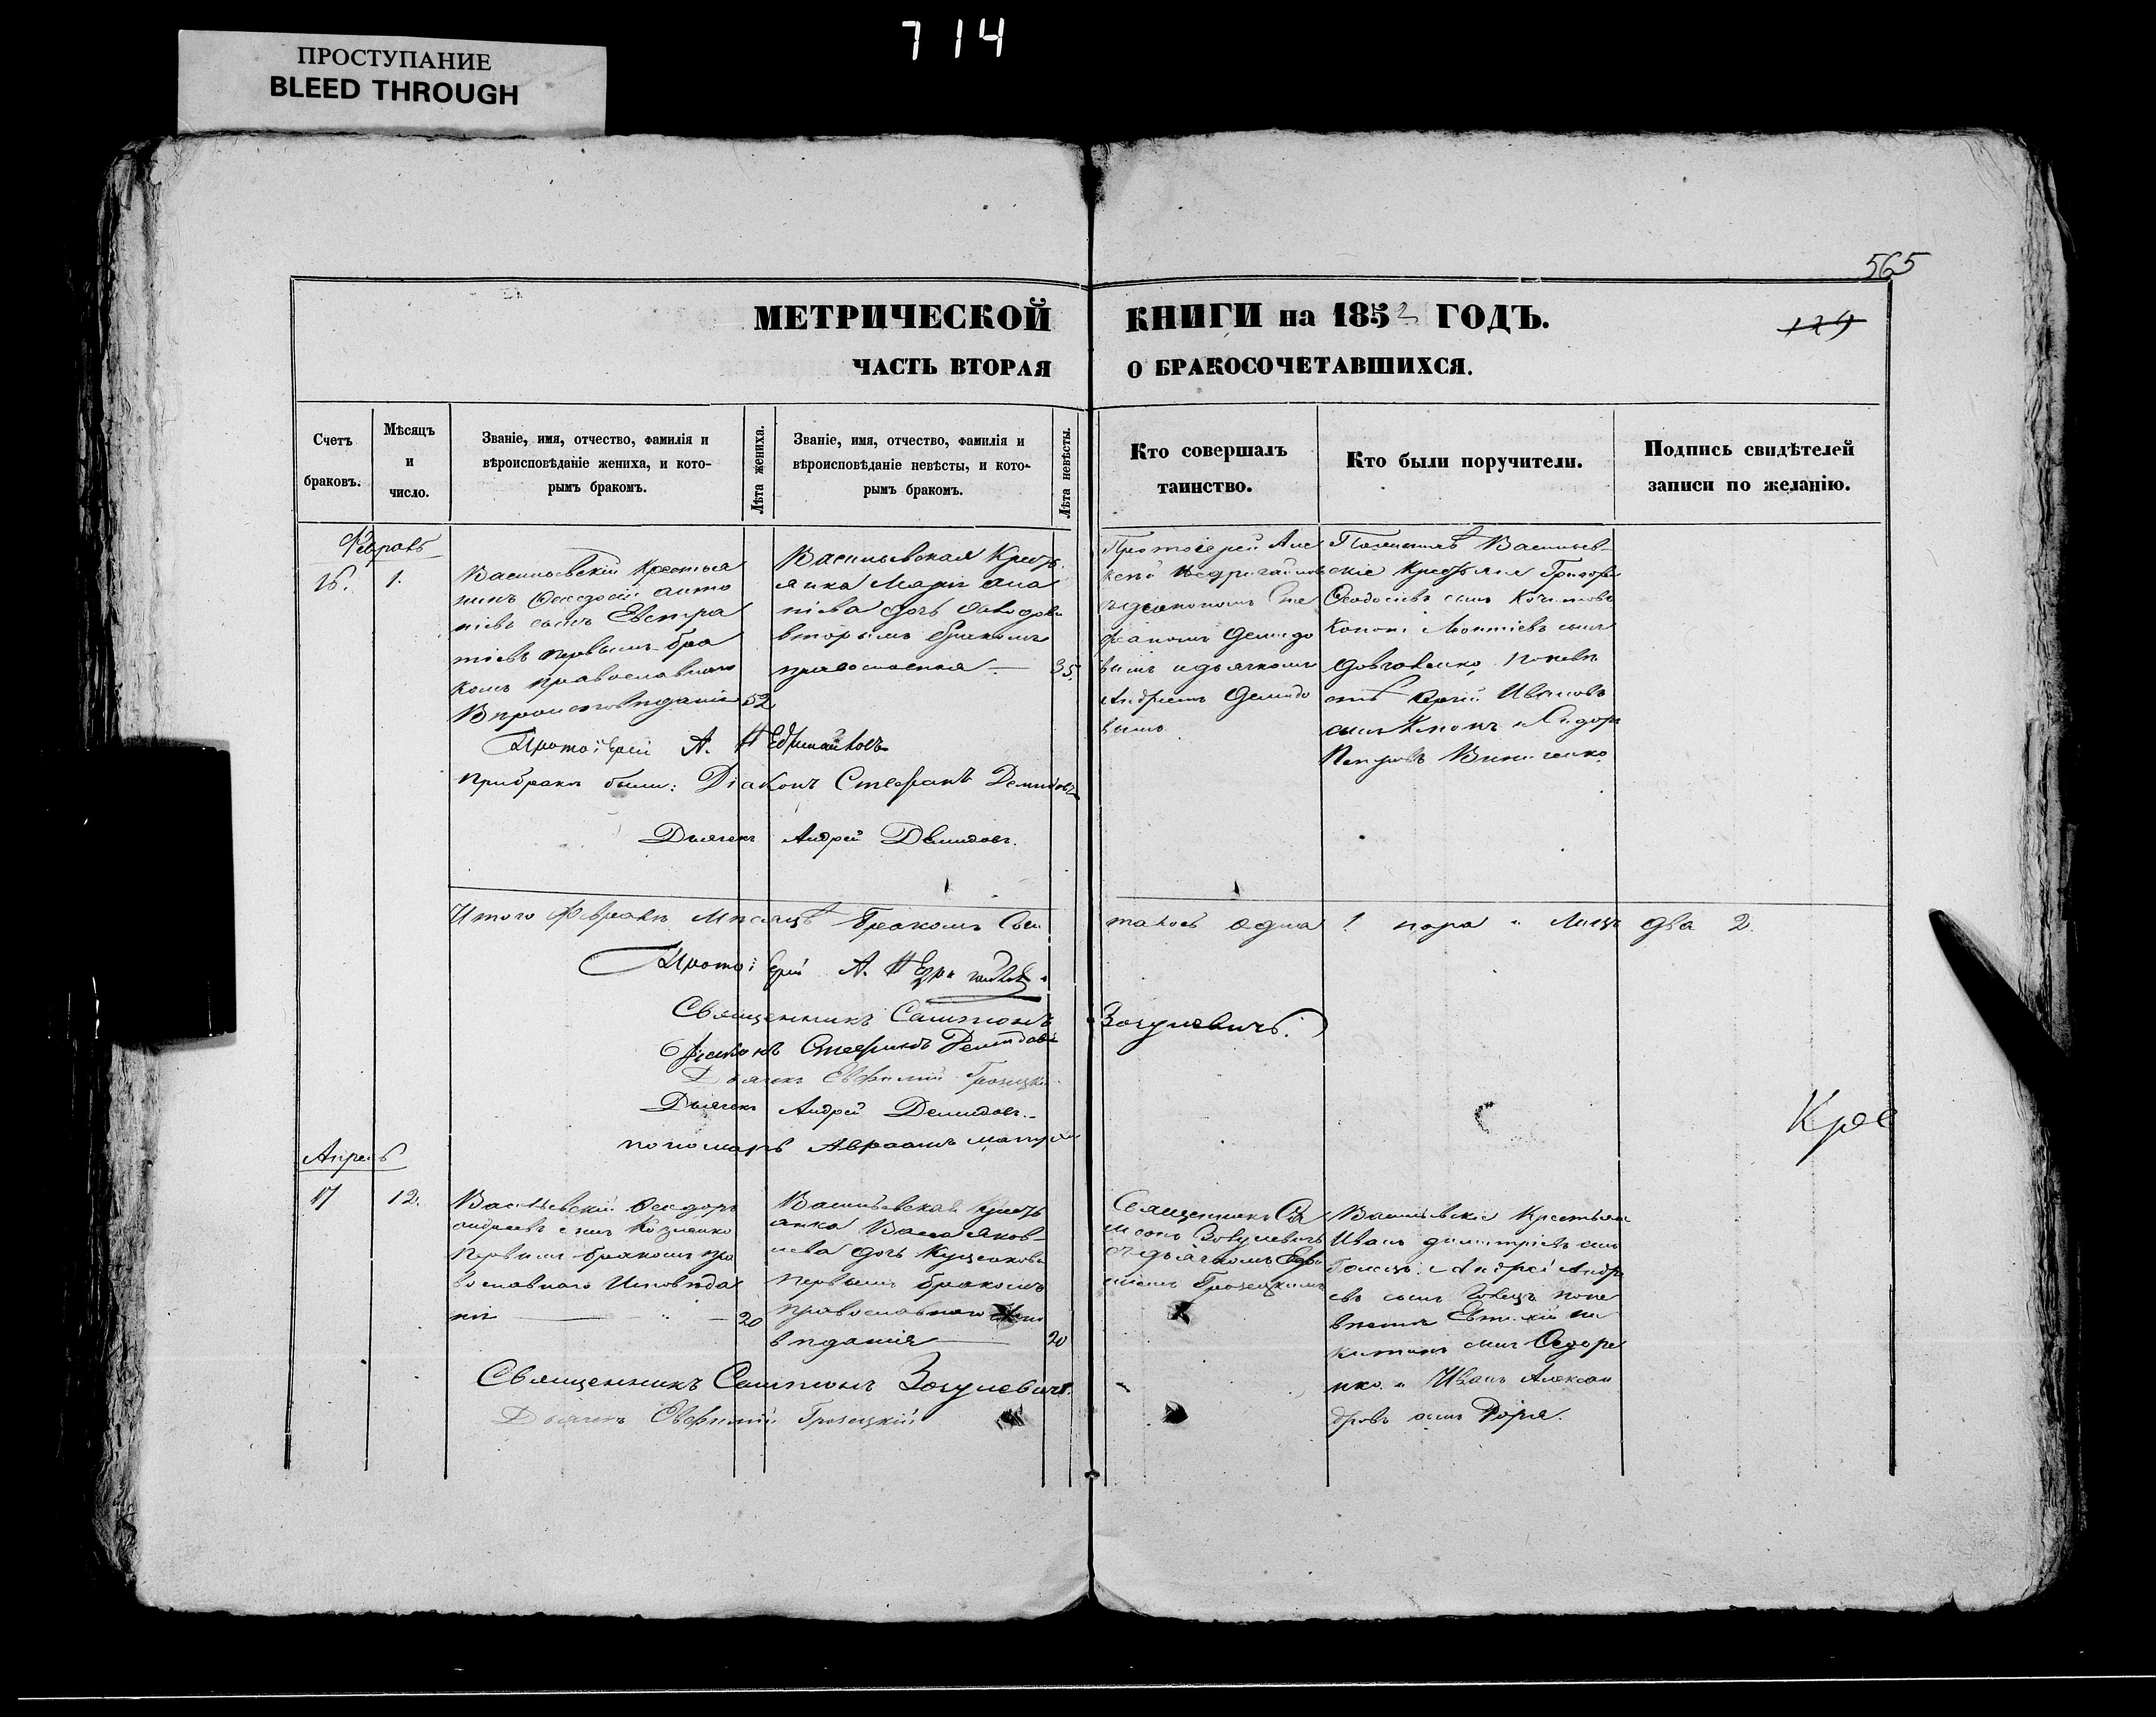 714
ПРОСТУПАНИЕ
BLEED THROUGH
565
МЕТРИЧЕСКОЙ КНИГИ на 1852 ГОДЪ.
129
ЧАСТЬ ВТОРАЯ О БРАКОСОЧЕТАВШИХСЯ.
Счетъ браковъ.
Мѣсяцъ и число.
Званіе, имя, отчество, фамилія и
вѣроисповѣданіе жениха, и кото-
рымъ бракомъ.
Лѣта жениха.
Званіе, имя, отчество, фамилія и
вѣроисповѣданіе невѣсты, и кото-
рымъ бракомъ.
Лѣта невѣсты.
Кто совершалъ
таинство.
Кто были поручители.
Подпись свидѣтелей
записи по желанію.
16. 1.
Васильевскій Крестья
нинъ Ѳеодосій Анто
ніевъ сынъ Евстра
тіевъ первымъ бра
комъ православнаго
52
Васильевская Кресть
янка
дочь
вторымъ бракомъ
православная 35.
Протоіерей Але
съ діакономъ Сте
фаномъ Демидо
вымъ и дьячкомъ
Андреемъ Демидо
вымъ
Васильев-
скіе Крестьяне Григорій
Ѳеодосіевъ сынъ
Кононъ Леонтіевъ сынъ
Довженко, по невѣ
стѣ Ивановъ
сынъ и Сидоръ
Петровъ Винниченко
Протоіерей А.
При бракѣ были: Діаконъ Стефанъ Демидовъ
Дьячекъ Андрей Демидовъ.
Итого Февралѣ Мѣсяцѣ бракомъ Соче
талось одна 1 пара и Лицъ два 2.
Протоіерей А.
Священникъ Сампсонъ Зогулевичъ.
Діаконъ Стефанъ Демидовъ
Дьячекъ Евфимій Грозецкій
Дьячекъ Андрей Демидовъ.
пономарь Авраамъ
Крес
Апрель
17 12.
Васильевскій Ѳеодоръ
Андреевъ сынъ Козленко
Первымъ бракомъ пра
вославнаго Исповѣда
нія 20
Васильевская Кресть
янка Васса Яков-
лева дочь Куценкова
первымъ бракомъ
православнаго
вѣданія 20
Священникъ Са
мсонъ Зогулевичъ
съ дьячкомъ Евфи
міемъ Грозецкимъ
Васильевскіе Крестьяне
Иванъ Димитріевъ сынъ
Голецъ и Андрей Андре
евъ сынъ Голецъ по не
вѣстѣ Евтихій Ни
китинъ сынъ Ѳедоре
нко и Иванъ Алексан
дровъ сынъ
Священникъ Сампсонъ Зогулевичъ.
Дьячекъ Евфимій Грозецкій